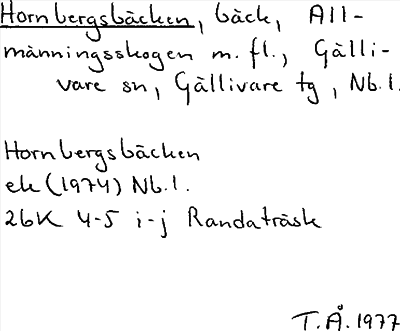 Hornbergsbäcken, bäck, All-
männingsskogen m. fl., Gälli-
vare sn, Gällivare tg, Nb.l.
Hornbergsbäcken
ek (1974) Nb.l.
26K 4-5 i-j Randaträsk
T.Å. 1977